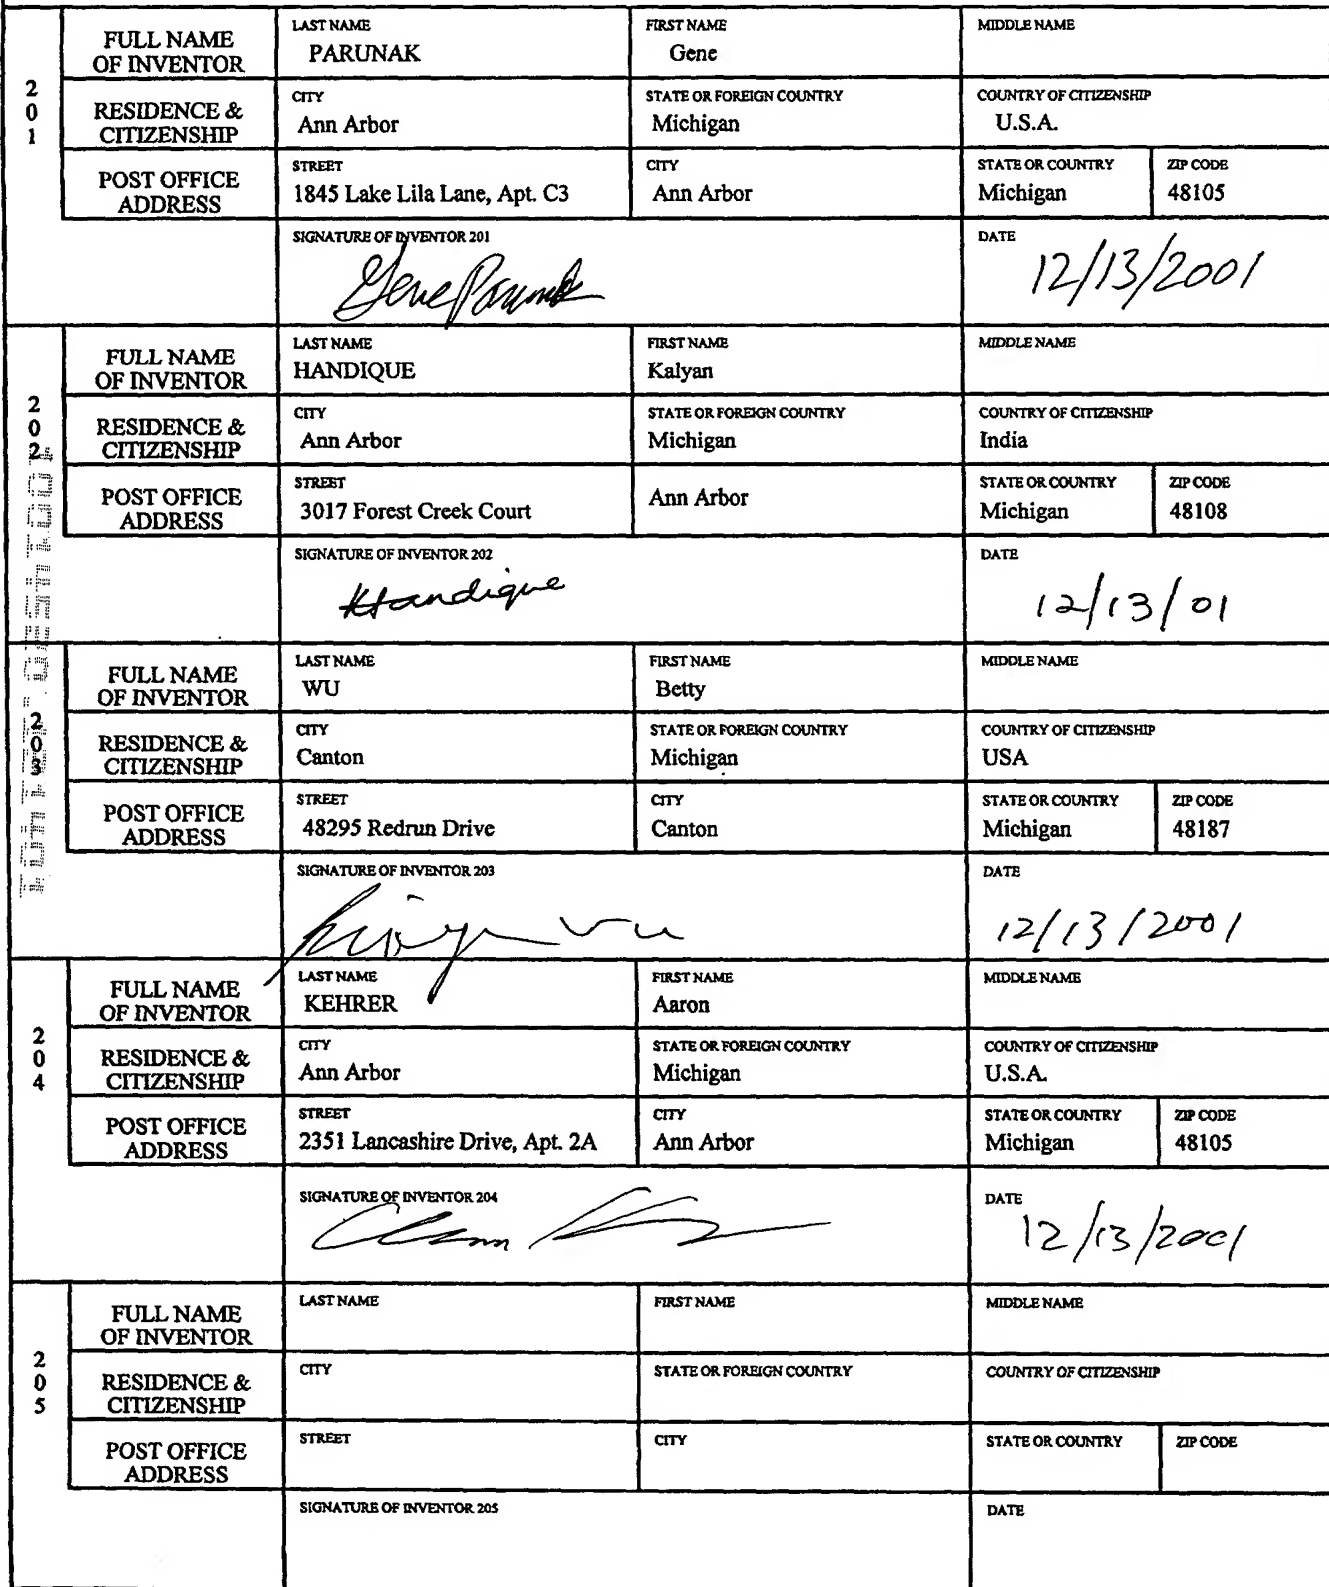 2 0 1
FULL NAME OF INVENTOR
LAST NAME
PARUNAK
FIRST NAME
Gene
MIDDLE NAME
RESIDENCE & CITIZENSHIP
CITY
Ann Arbor
STATE OR FOREIGN COUNTRY
Michigan
COUNTRY OF CITIZENSHIP
U.S.A.
POST OFFICE ADDRESS
STREET
1845 Lake Lila Lane, Apt. C3
CITY
Ann Arbor
STATE OR COUNTRY
Michigan
ZIP CODE
48105
SIGNATURE OF INVENTOR 201
Gene Parunak
DATE
12/13/2001
2 0 2
FULL NAME OF INVENTOR
LAST NAME
HANDIQUE
FIRST NAME
Kalyan
MIDDLE NAME
RESIDENCE & CITIZENSHIP
CITY
Ann Arbor
STATE OR FOREIGN COUNTRY
Michigan
COUNTRY OF CITIZENSHIP
India
POST OFFICE ADDRESS
STREET
3017 Forest Creek Court
Ann Arbor
STATE OR COUNTRY
Michigan
ZIP CODE
48108
SIGNATURE OF INVENTOR 202
KHandique
DATE
12/13/01
2 0 3
FULL NAME OF INVENTOR
LAST NAME
WU
FIRST NAME
Betty
MIDDLE NAME
RESIDENCE & CITIZENSHIP
CITY
Canton
STATE OR FOREIGN COUNTRY
Michigan
COUNTRY OF CITIZENSHIP
USA
POST OFFICE ADDRESS
STREET
48295 Redrun Drive
CITY
Canton
STATE OR COUNTRY
Michigan
ZIP CODE
48187
SIGNATURE OF INVENTOR 203
DATE
12/13/2001
2 0 4
FULL NAME OF INVENTOR
LAST NAME
KEHRER
FIRST NAME
Aaron
MIDDLE NAME
RESIDENCE & CITIZENSHIP
CITY
Ann Arbor
STATE OR FOREIGN COUNTRY
Michigan
COUNTRY OF CITIZENSHIP
U.S.A.
POST OFFICE ADDRESS
STREET
2351 Lancashire Drive, Apt. 2A
CITY
Ann Arbor
STATE OR COUNTRY
Michigan
ZIP CODE
48105
SIGNATURE OF INVENTOR 204
DATE
12/13/2001
2 0 5
FULL NAME OF INVENTOR
LAST NAME
FIRST NAME
MIDDLE NAME
RESIDENCE & CITIZENSHIP
CITY
STATE OR FOREIGN COUNTRY
COUNTRY OF CITIZENSHIP
POST OFFICE ADDRESS
STREET
CITY
STATE OR COUNTRY
ZIP CODE
SIGNATURE OF INVENTOR 205
DATE